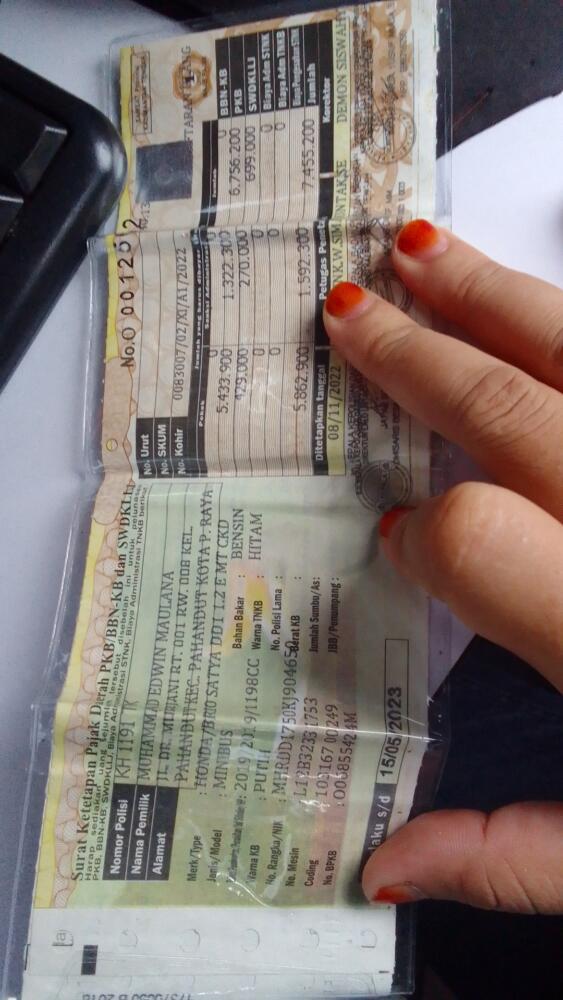 Surat Ketetapan Pajak Daerah PKB/BBN-KB dan SWDKLLJ
Harap sediakan uang sejumlah tersebut disebelah ini untuk pelunasan
PKB, BBN-KB, SWDKLLJ, Biaya Administrasi STNK, Biaya Administrasi TNKB
Nomor Polisi KH 1191
Nama Pemilik MUHAMMAD EDWIN MAULANA
Alamat JL DR. MURJANI RT. 001 RW. 008 KEL.
PAHANDUT KEC. PAHANDUT KOTA P. RAYA
Merk/Type : HONDA/BRIO SATYA DD1 1.2 E MT CKD
Jenis/Model : MINIBUS
: 2019/2019/1198CC
Warna KB : PUTIH
No. Rangka/NIK : MHRDD1750KJ904650
No. Mesin : L12B32331753
Coding : 101167 00249
No. BPKB
Bahan Bakar : BENSIN
Warna TNKB : HITAM
No. Polisi Lama :
Berat KB :
Jumlah Sumbu/As:
JBB/Penumpang :
laku s/d 15/05/2023
No.O 0012512
No. Urut
No. SKUM 0083007/02/XI/A1/2022
No. Kohir
Pokok Jumlah
0 0 0 BBN-KB
5.433.900 1.322.300 6.756.200 PKB
429.000 270.000 699.000 SWDKLLJ
0 0 0 Biaya Adm STNK
0 0 0 Biaya Adm TNKB
5.862.900 1.592.300 7.455.200 Jumlah
Ditetapkan tanggal Petugas Korektor
08/11/2022 DEMON SISWAH